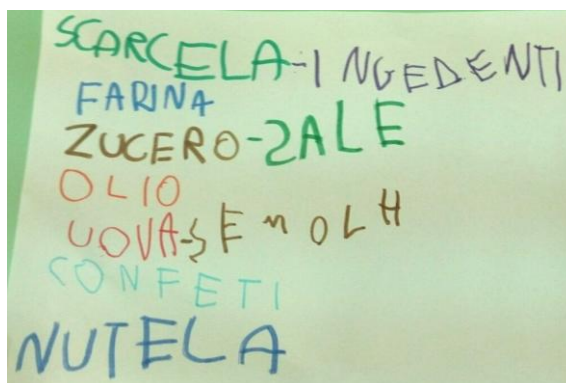 SCARCELA-INGEDENTI
FARINA
ZUCERO-SALE
OLIO
UOVA-SEMOLA
CONFETI
NUTELA